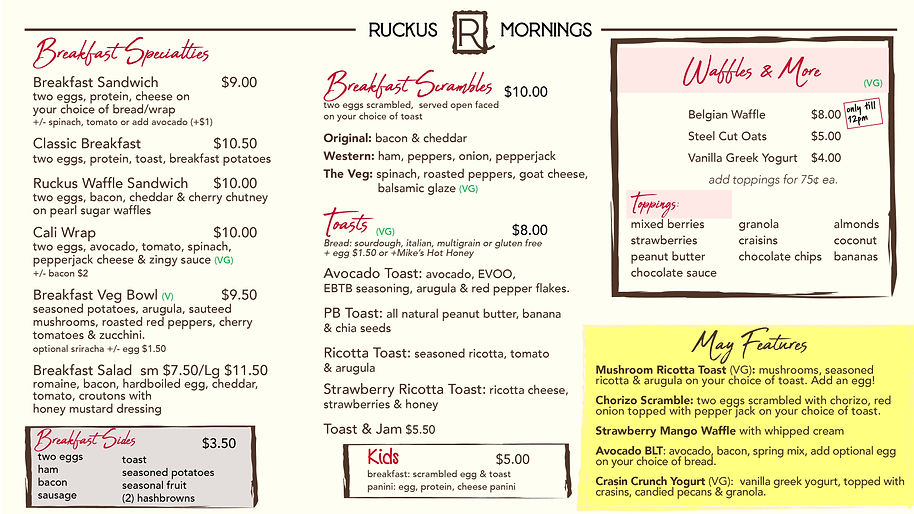 RUCKUS R MORNINGS
Breakfast Specialties
Breakfast Sandwich $9.00
two eggs, protein, cheese on
your choice of bread/wrap
+/- spinach, tomato or add avocado (+$1)
Classic Breakfast $10.50
two eggs, protein, toast, breakfast potatoes
Ruckus Waffle Sandwich $10.00
two eggs, bacon, cheddar & cherry chutney
on pearl sugar waffles
Cali Wrap $10.00
two eggs, avocado, tomato, spinach,
pepperjack cheese & zingy sauce (VG)
+/- bacon $2
Breakfast Veg Bowl (V) $9.50
seasoned potatoes, arugula, sauteed
mushrooms, roasted red peppers, cherry
tomatoes & zucchini.
optional sriracha +/- egg $1.50
Breakfast Salad sm $7.50/Lg $11.50
romaine, bacon, hardboiled egg, cheddar,
tomato, croutons with
honey mustard dressing
Breakfast Sides $3.50
two eggs
ham
bacon
sausage
toast
seasoned potatoes
seasonal fruit
(2) hashbrowns
Breakfast Scrambles $10.00
two eggs scrambled, served open faced
on your choice of toast
Original: bacon & cheddar
Western: ham, peppers, onion, pepperjack
The Veg: spinach, roasted peppers, goat cheese,
balsamic glaze (VG)
Toasts (VG) $8.00
Bread: sourdough, italian, multigrain or gluten free
+ egg $1.50 or +Mike's Hot Honey
Avocado Toast: avocado, EVOO,
EBTB seasoning, arugula & red pepper flakes.
PB Toast: all natural peanut butter, banana
& chia seeds
Ricotta Toast: seasoned ricotta, tomato
& arugula
Strawberry Ricotta Toast: ricotta cheese,
strawberries & honey
Toast & Jam $5.50
Kids $5.00
breakfast: scrambled egg & toast
panini: egg, protein, cheese panini
Waffles & More (VG)
Belgian Waffle $8.00
only till
12pm
Steel Cut Oats $5.00
Vanilla Greek Yogurt $4.00
add toppings for 75¢ ea.
Toppings:
mixed berries granola almonds
strawberries craisins coconut
peanut butter chocolate chips bananas
chocolate sauce
May Features
Mushroom Ricotta Toast (VG): mushrooms, seasoned
ricotta & arugula on your choice of toast. Add an egg!
Chorizo Scramble: two eggs scrambled with chorizo, red
onion topped with pepper jack on your choice of toast.
Strawberry Mango Waffle with whipped cream
Avocado BLT: avocado, bacon, spring mix, add optional egg
on your choice of bread.
Crasin Crunch Yogurt (VG): vanilla greek yogurt, topped with
crasins, candied pecans & granola.